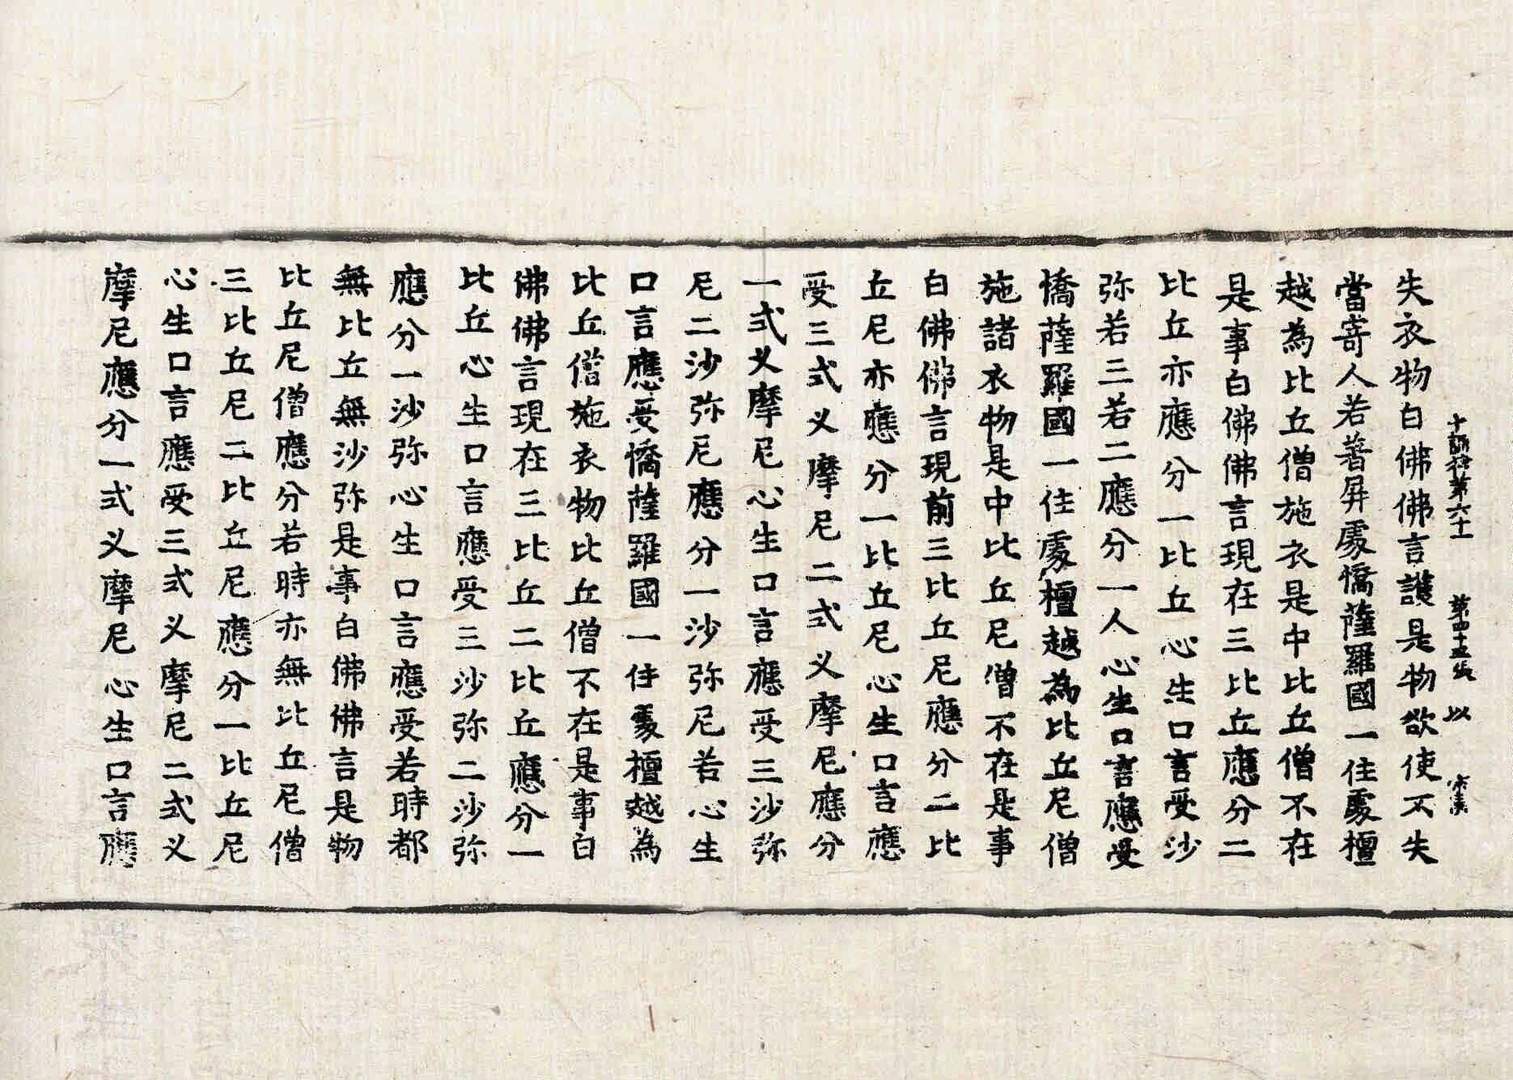 十誦律第六十 第四十五張 以
失衣物白佛佛言護是物欲使不失
當寄人若著屏處憍薩羅國一住處檀
越為比丘僧施衣是中比丘僧不在
是事白佛佛言現在三比丘應分二
比丘亦應分一比丘心生口言受沙
弥若三若二應分一人心生口言應受
憍薩羅國一住處檀越為比丘尼僧
施諸衣物是中比丘尼僧不在是事
白佛佛言現前三比丘尼應分二比
丘尼亦應分一比丘尼心生口言應
受三式义摩尼二式义摩尼應分
一式义摩尼心生口言應受三沙弥
尼二沙弥尼應分一沙弥尼若心生
口言應受憍薩羅國一住處檀越為
比丘僧施衣物比丘僧不在是事白
佛佛言現在三比丘二比丘應分一
比丘心生口言應受三沙弥二沙弥
應分一沙弥心生口言應受若時都
無比丘無沙弥是事白佛佛言是物
比丘尼僧應分若時亦無比丘尼僧
三比丘尼二比丘尼應分一比丘尼
心生口言應受三式义摩尼二式义
摩尼應分一式义摩尼心生口言應